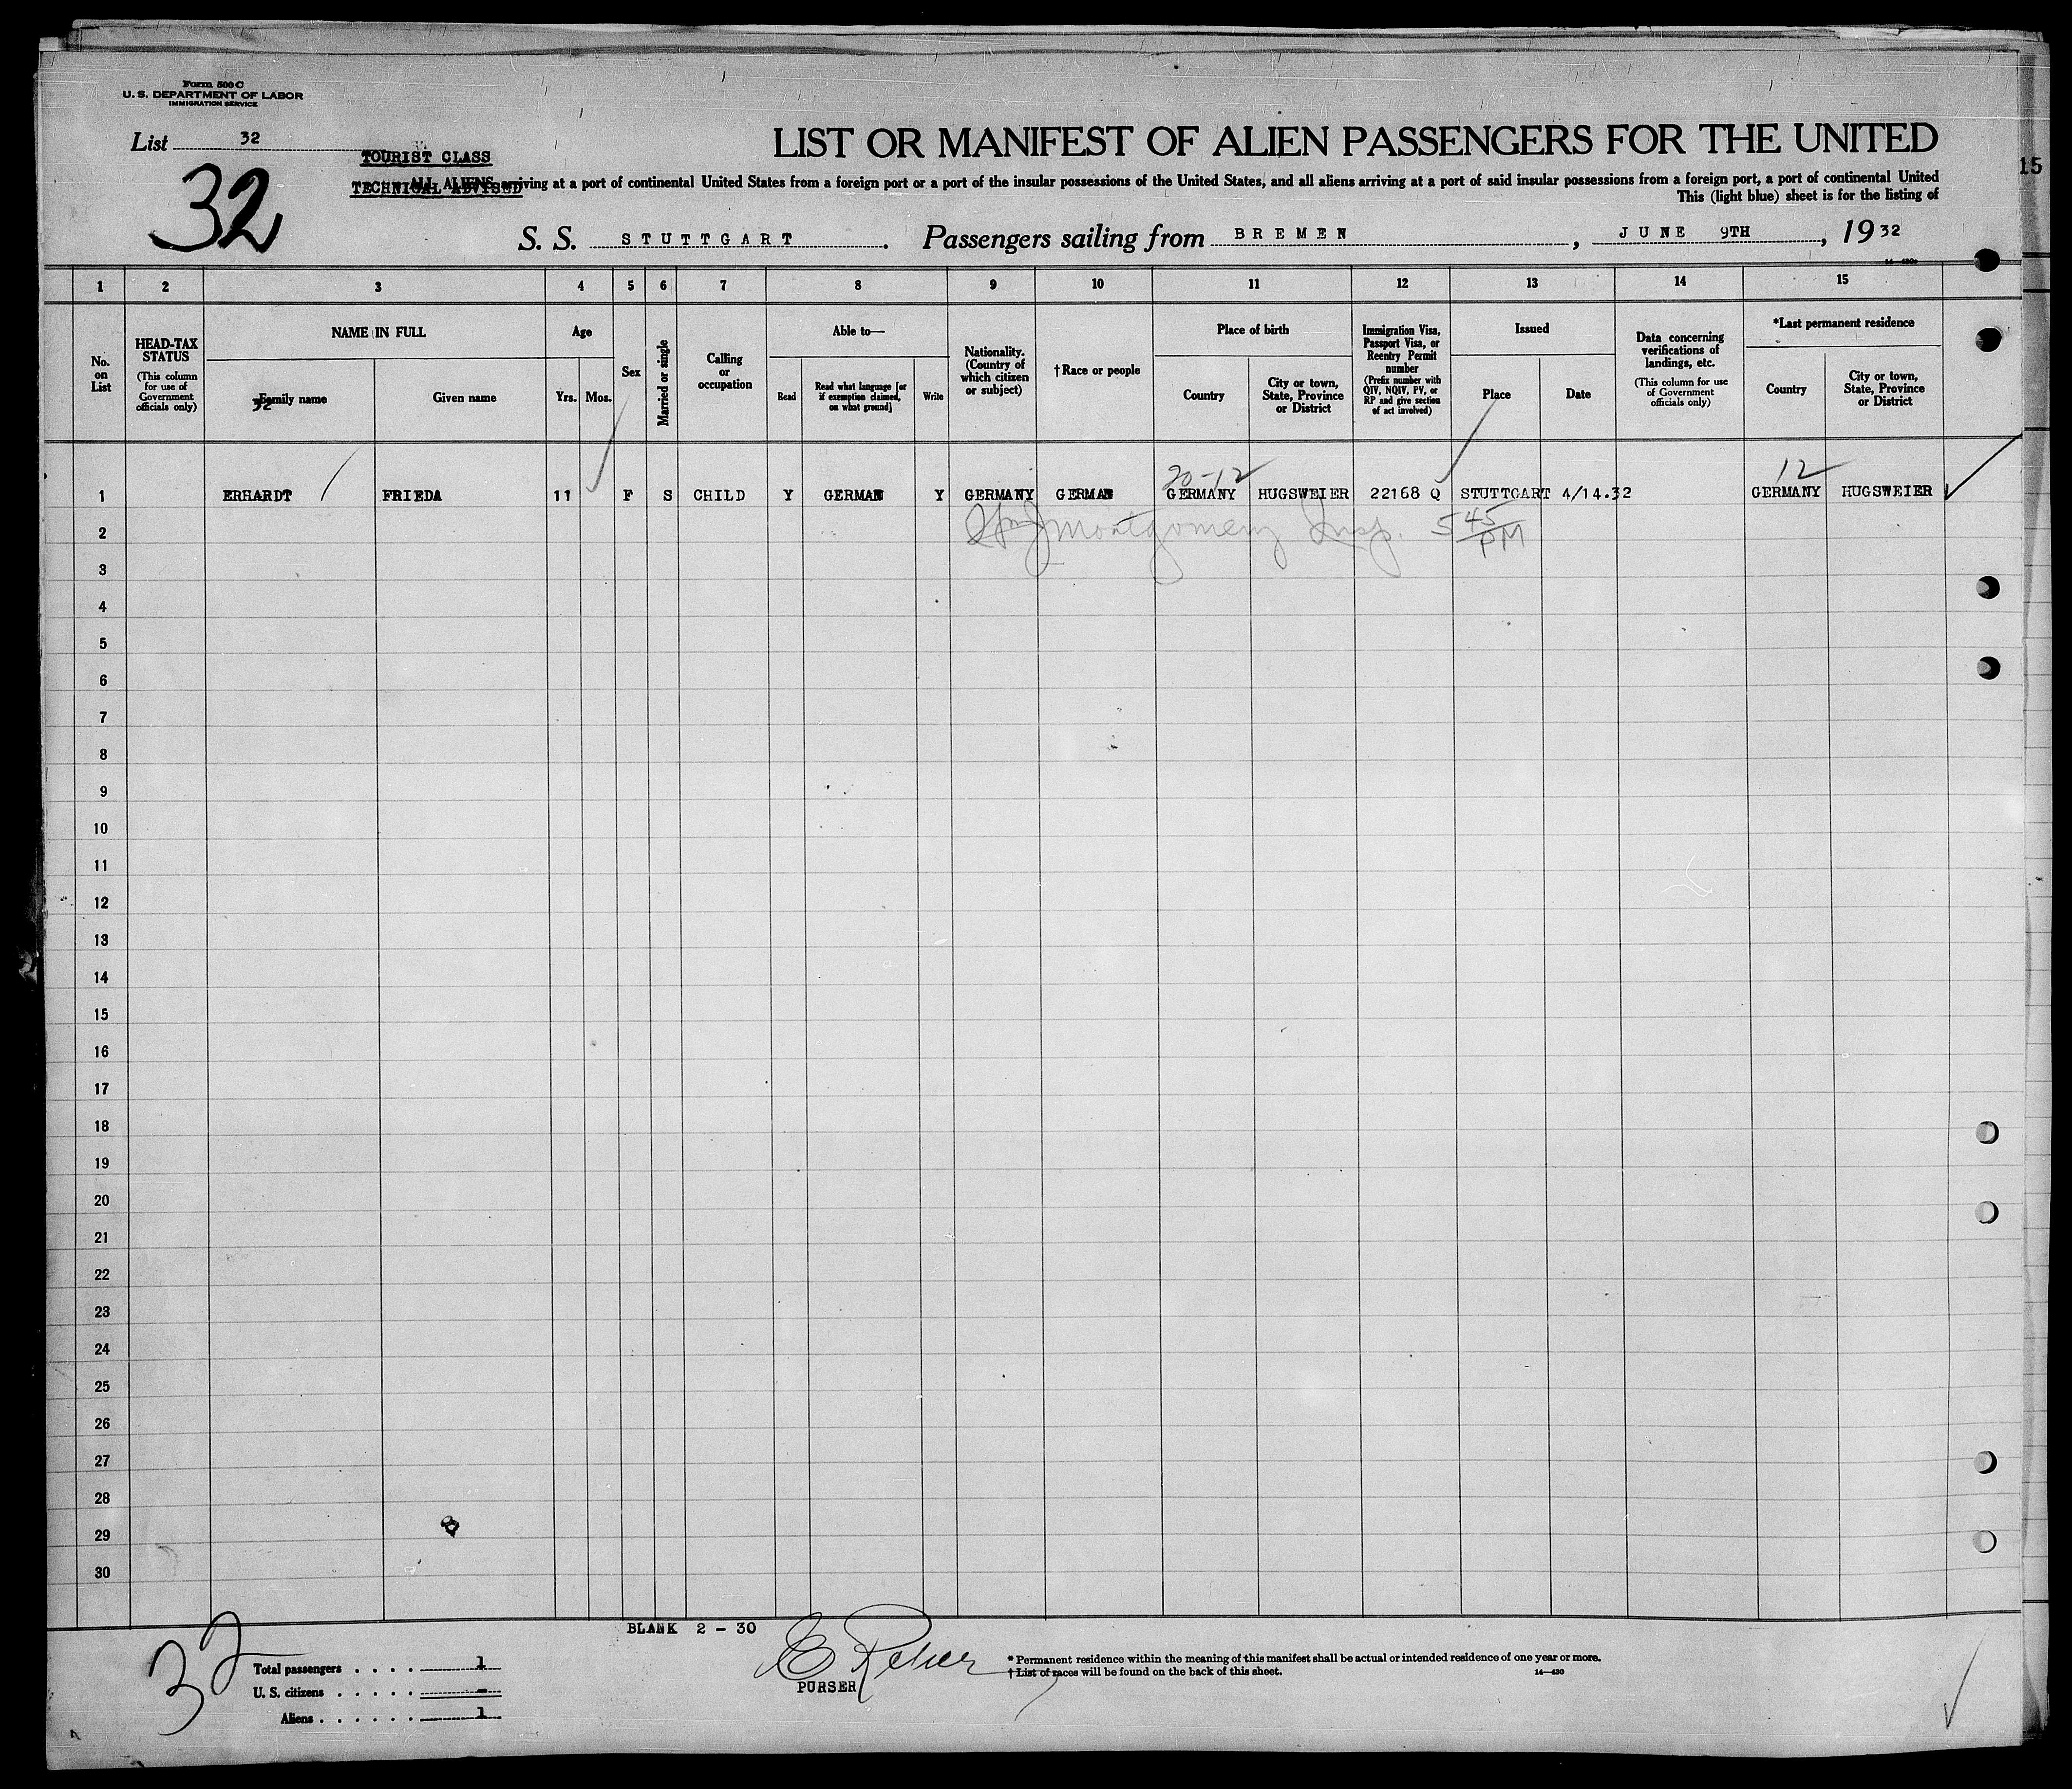 Form 500 C
U. S. DEPARTMENT OF LABOR
IMMIGRATION SERVICE
List 32
32
TOURIST CLASS
TECHNICAL ADVISED
LIST OR MANIFEST OF ALIEN PASSENGERS FOR THE UNITED
15
ALL ALIENS arriving at a port of continental United States from a foreign port or a port of the insular possessions of the United States, and all aliens arriving at a port of said insular possessions from a foreign port, a port of continental United
This (light blue) sheet is for the listing of
S. S. STUTTGART. Passengers sailing from BREMEN, JUNE 9TH, 1932
1 2 3 4 5 6 7 8 9 10 11 12 13 14 15
No. on List
HEAD-TAX STATUS (This column for use of Government officials only)
NAME IN FULL
32
Family name
Given name
Age
Yrs. Mos.
Sex
Married or single
Calling or occupation
Able to—
Read
Read what language [or if exemption claimed, on what ground]
Write
Nationality. (Country of which citizen or subject)
†Race or people
Place of birth
Country
City or town, State, Province or District
Immigration Visa, Passport Visa, or Reentry Permit number (Prefix number with QIV, NQIV, PV, or RP and give section of act involved)
Issued
Place
Date
Data concerning verifications of landings, etc. (This column for use of Government officials only)
*Last permanent residence
Country
City or town, State, Province or District
20-12
12
1 ERHARDT FRIEDA 11 F S CHILD Y GERMAN Y GERMANY GERMAN GERMANY HUGSWEIER 22168 Q STUTTGART 4/14.32 GERMANY HUGSWEIER
2 Wm J Montgomery Insp. 5 45 PM
3
4
5
6
7
8
9
10
11
12
13
14
15
16
17
18
19
20
21
22
23
24
25
26
27
28
29
30
BLANK 2 - 30
32
Total passengers . . . . 1
U. S. citizens . . . . . -
Aliens . . . . . . 1
PURSER
* Permanent residence within the meaning of this manifest shall be actual or intended residence of one year or more.
† List of races will be found on the back of this sheet.
14—430